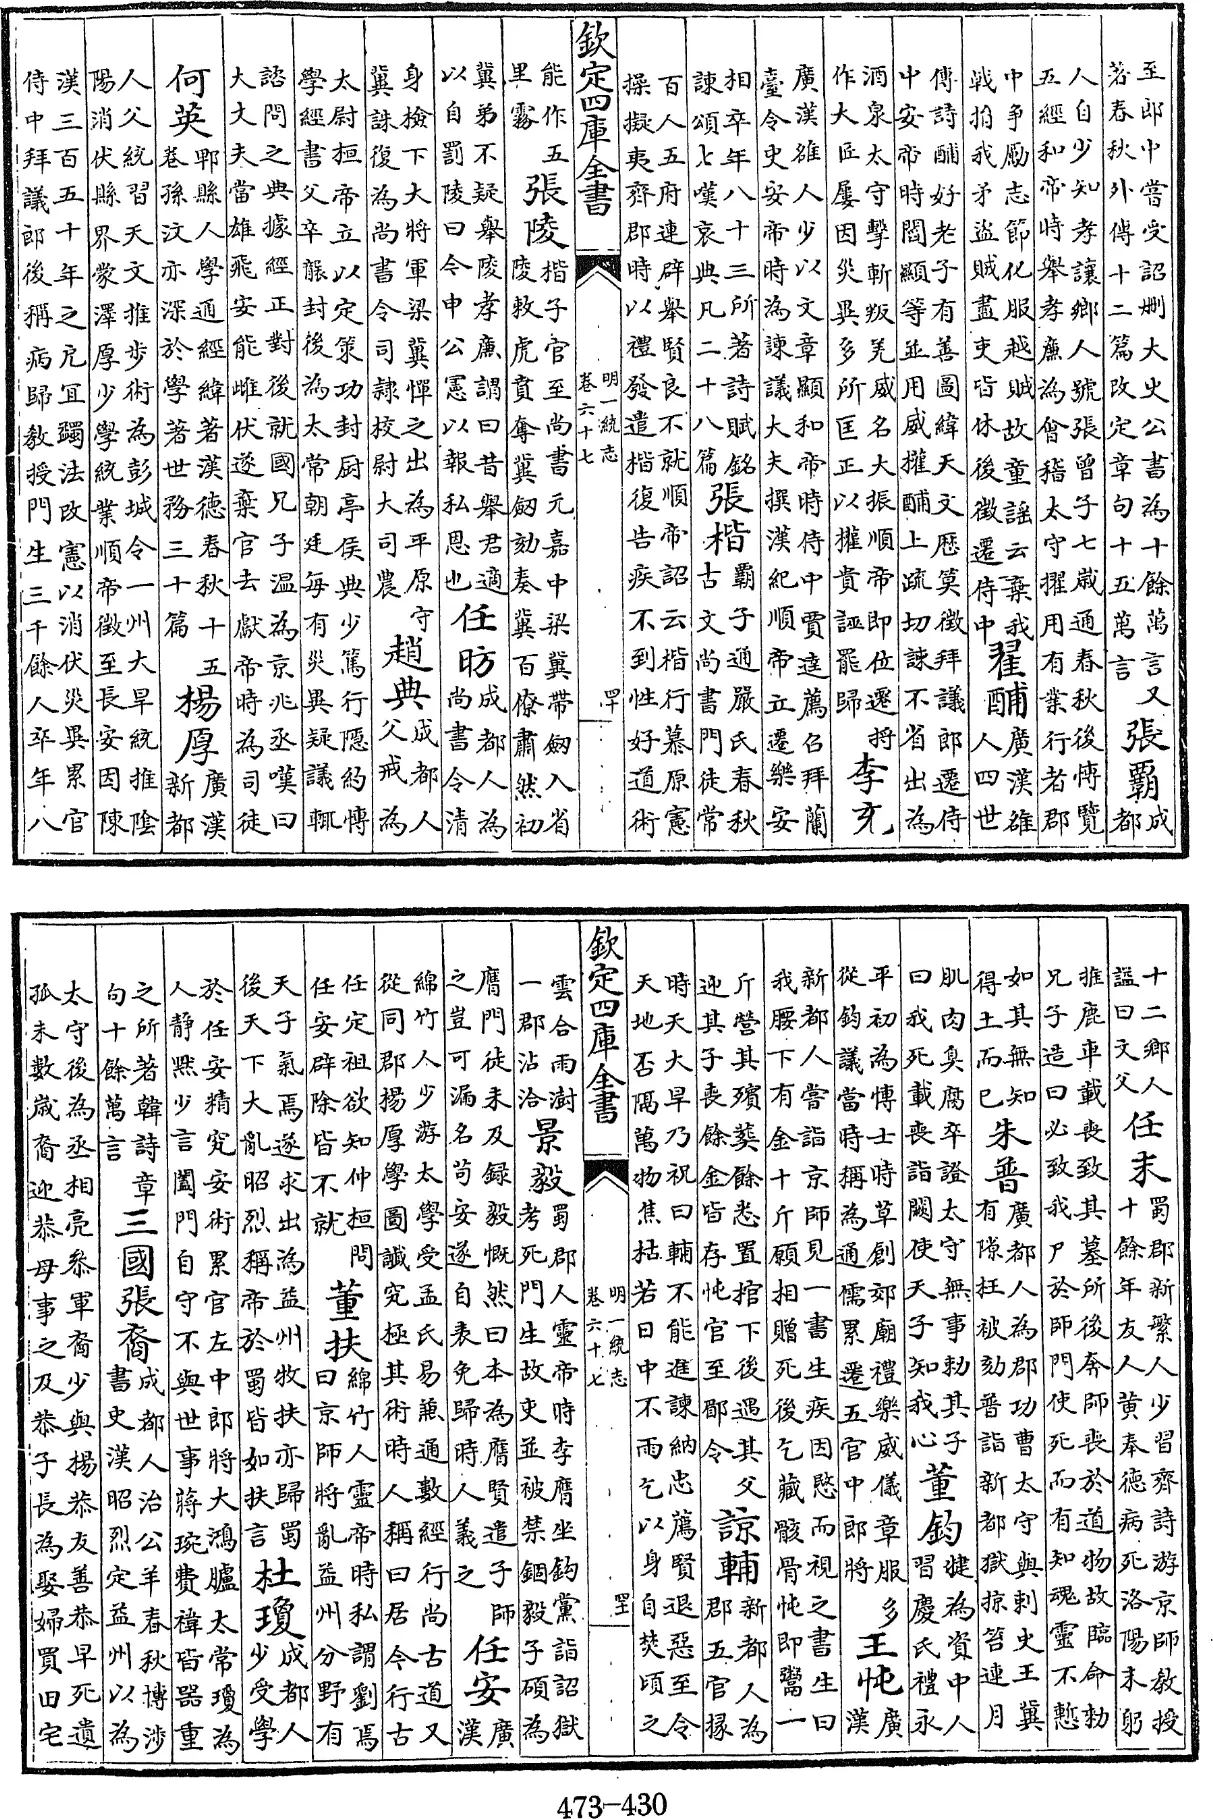 至郎中嘗受詔刪大史公書為十餘萬言又
著春秋外傳十二篇改定章句十五萬言
張霸
成
都
人自少知孝讓鄉人號張曾子七歲通春秋後愽覽
五經和帝時舉孝廉為會稽太守擢用有業行者郡
中爭勵志節化服越賊故童謠云棄我
戟捐我矛盜賊盡吏皆休後徵遷侍中
翟酺
廣漢雒
人四世
傳詩酺好老子有善圖緯天文厯筭徵拜議郎遷侍
中安帝時閻顯等並用威權酺上疏切諫不省出為
酒泉太守擊斬叛羌威名大振順帝即位遷将
作大匠屢因災異多所匡正以權貴誣罷歸
李尤
廣漢雒人少以文章顯和帝時侍中賈逵薦召拜蘭
臺令史安帝時為諫議大夫撰漢紀順帝立遷樂安
相卒年八十三所著詩賦銘
諫頌七嘆哀典凡二十八篇
張楷
霸子通嚴氏春秋
古文尚書門徒常
百人五府連辟舉賢良不就順帝詔云楷行慕原憲
操擬夷齊郡時以禮發遣楷復告疾不到性好道術
欽定四庫全書
明一統志
卷六十七
能作五
里霧
張陵
楷子官至尚書元嘉中梁冀帶劒入省
陵敕虎賁奪冀劒劾奏冀百僚肅然初
冀弟不疑舉陵孝廉謂曰昔舉君適
以自罰陵曰令申公憲以報私恩也
任昉
成都人為
尚書令清
身檢下大將軍梁冀憚之出為平原守
冀誅復為尚書令司隷校尉大司農
趙典
成都人
父戒為
太尉桓帝立以定策功封厨亭侯典少篤行隱約愽
學經書父卒龍封後為太常朝廷每有災異疑議輒
諮問之典據經正對後就國兄子溫為京兆丞嘆曰
大丈夫當雄飛安能雌伏遂棄官去獻帝時為司徒
何英
郫縣人學通經緯著漢德春秋十五
卷孫汶亦深於學著世務三十篇
楊厚
廣漢
新都
人父統習天文推步術為彭城令一州大旱統推陰
陽消伏縣界蒙澤厚少學統業順帝徵至長安因陳
漢三百五十年之戹宜蠲法改憲以消伏災異累官
侍中拜議郎後稱病歸教授門生三千餘人卒年八
十二鄉人
謚曰文父
任末
蜀郡新繁人少習齊詩游京師教授
十餘年友人黃奉德病死洛陽末躬
推鹿車載喪致其墓所後奔師喪於道物故臨命勅
兄子造曰必致我尸於師門使死而有知魂靈不慙
如其無知
得土而已
朱普
廣都人為郡功曹太守與刺史王冀
有隙枉被劾普詣新都獄掠笞連月
肌肉臭腐卒證太守無事勅其子
曰我死載喪詣闕使天子知我心
董鈞
犍為資中人
習慶氏禮永
平初為博士時草創郊廟禮樂威儀章服多
從鈞議當時稱為通儒累遷五官中郎將
王忳
廣
漢
新都人嘗詣京師見一書生疾因愍而視之書生曰
我腰下有金十斤願相贈死後乞藏骸骨忳即鬻一
斤營其殯葬餘悉置棺下後遇其父
迎其子喪餘金皆存忳官至郿令
諒輔
新都人為
郡五官掾
時天大旱乃祝曰輔不能進諫納忠薦賢退惡至令
天地否隔萬物焦枯若日中不雨乞以身自焚頃之
欽定四庫全書
明一統志
卷六十七
雲合雨澍
一郡沾洽
景毅
蜀郡人靈帝時李膺坐鈎黨詣詔獄
考死門生故吏並被禁錮毅子碩為
膺門徒未及録毅慨然曰本為膺賢遣子師
之豈可漏名苟安遂自表免歸時人義之
任安
廣
漢
綿竹人少游太學受孟氏易兼通數經行尚古道又
從同郡楊厚學圖讖究極其術時人稱曰居今行古
任定祖欲知仲桓問
任安辟除皆不就
董扶
綿竹人靈帝時私謂劉焉
曰京師將亂益州分野有
天子氣焉遂求出為益州牧扶亦歸蜀
後天下大亂昭烈稱帝於蜀皆如扶言
杜瓊
成都人
少受學
於任安精究安術累官左中郎將大鴻臚太常瓊為
人静黙少言闔門自守不與世事蔣琬費禕皆器重
之所著韓詩章
句十餘萬言
三國張裔
成都人治公羊春秋博涉
書史漢昭烈定益州以為
太守後為丞相亮叅軍裔少與楊恭友善恭早死遺
孤未數歲裔迎恭母事之及恭子長為娶婦買田宅
473-430